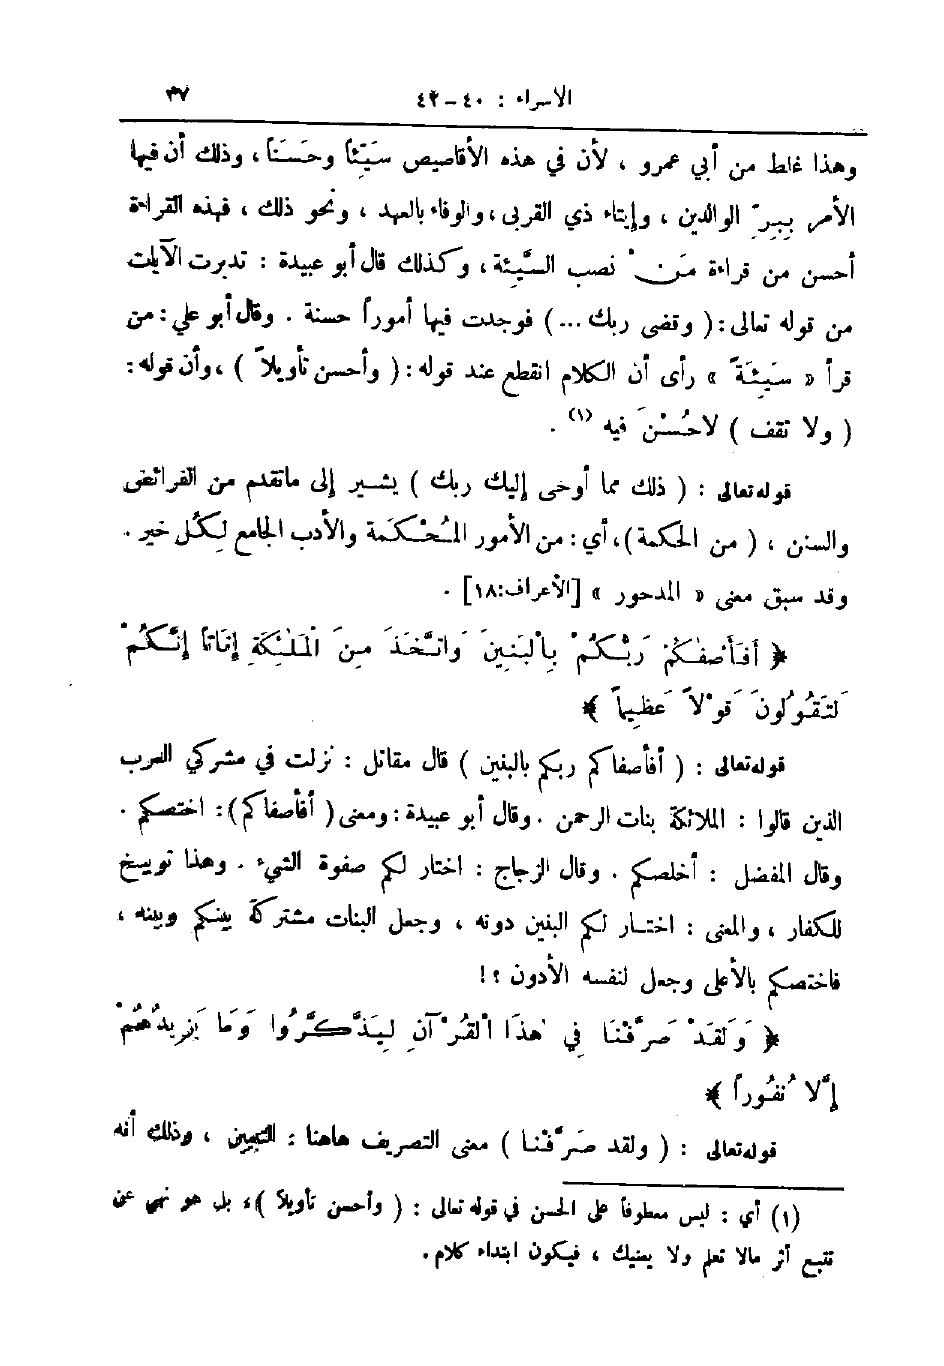 الاسراء : ٤٠-٤٢ ٣٧
وهذا غلط من أبي عمرو ، لأن في هذه الأقاصيص سَيِّئاً وحَسَناً ، وذلك أن فيها
الأمر بِبِرِّ الوالدين ، وإيتاء ذي القربى ، والوفاء بالعهد ، ونحو ذلك ، فهذه القراءة
أحسن من قراءة مَن نصب السَّيِّئة ، وكذلك قال أبو عبيدة : تدبرت الآيات
من قوله تعالى : ( وقضى ربك ... ) فوجدت فيها أموراً حسنة . وقال أبو علي : من
قرأ « سَيِّئَةً » رأى أن الكلام انقطع عند قوله : ( وأحسن تأويلاً ) ، وأن قوله :
( ولا تقف ) لا حُسْنَ فيه (١) .
قوله تعالى : ( ذلك مما أوحى إليك ربك ) يشير إلى ماتقدم من الفرائض
والسنن ، ( من الحكمة ) ، أي : من الأمور المُحْكَمة والأدب الجامع لِكُل خير .
وقد سبق معنى « المدحور » [الأعراف:١٨] .
﴿ أَفَأَصْفٰكُمْ رَبُّكُمْ بِالْبَنِينَ وَاتَّخَذَ مِنَ الْمَلٰئِكَةِ إِنَاثاً إِنَّكُمْ
لَتَقُولُونَ قَوْلاً عَظِيماً ﴾
قوله تعالى : ( أفأصفاكم ربكم بالبنين ) قال مقاتل : نزلت في مشركي العرب
الذين قالوا : الملائكة بنات الرحمن . وقال أبو عبيدة : ومعنى ( أفأصفاكم ) : اختصكم .
وقال المفضل : أخلصكم . وقال الزجاج : اختار لكم صفوة الشيء . وهذا توبيخ
للكفار ، والمعنى : اختار لكم البنين دونه ، وجعل البنات مشتركة بينكم وبينه ،
فاختصكم بالأعلى وجعل لنفسه الأدون ؟!
﴿ وَلَقَدْ صَرَّفْنَا فِي هٰذَا الْقُرْآنِ لِيَذَّكَّرُوا وَمَا يَزِيدُهُمْ
إِلَّا نُفُوراً ﴾
قوله تعالى : ( ولقد صَرَّفْنا ) معنى التصريف هاهنا : التبيين ، وذلك أنه
(١) أي : ليس معطوفاً على الحسن في قوله تعالى : ( وأحسن تأويلاً ) ، بل هو نهي عن
تتبع أثر مالا تعلم ولا يعنيك ، فيكون ابتداء كلام .